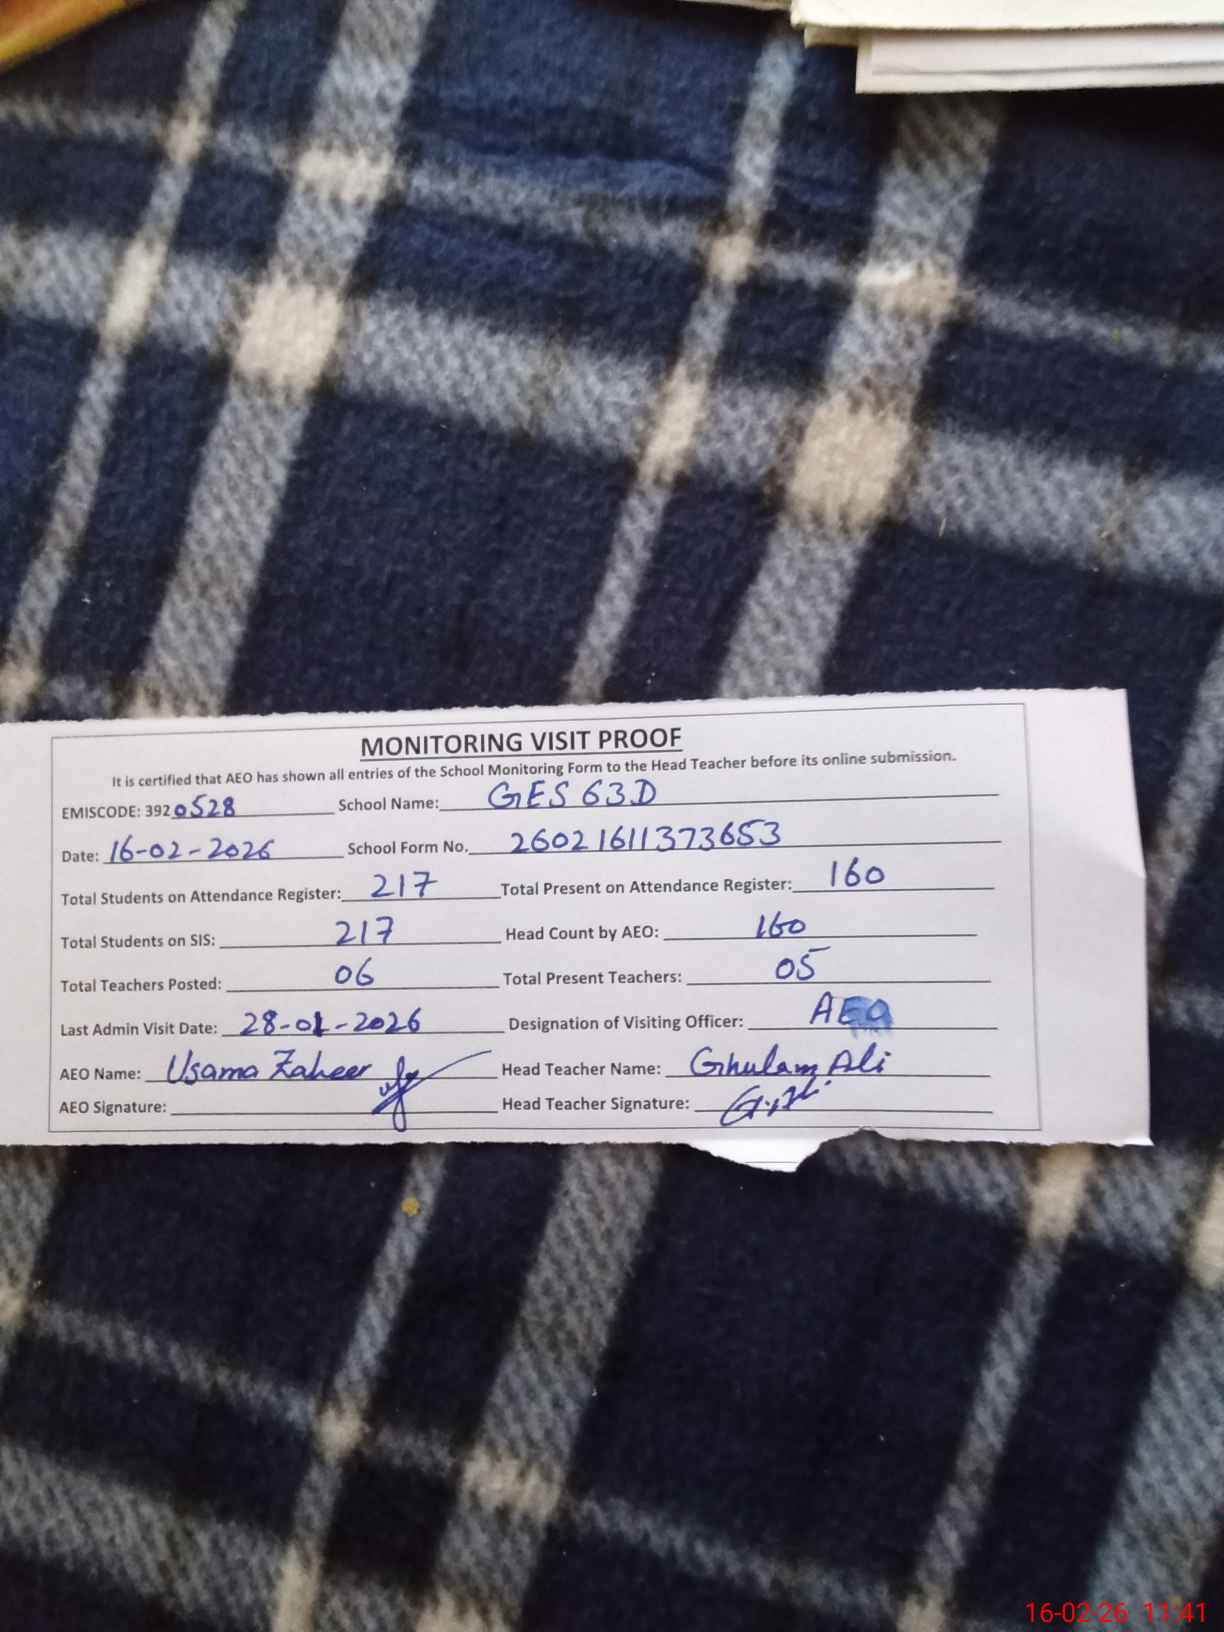 MONITORING VISIT PROOF
It is certified that AEO has shown all entries of the School Monitoring Form to the Head Teacher before its online submission.
EMISCODE: 3920528 School Name: GES 63D
Date: 16-02-2026 School Form No. 26021611373653
Total Students on Attendance Register: 217 Total Present on Attendance Register: 160
Total Students on SIS: 217 Head Count by AEO: 160
Total Teachers Posted: 06 Total Present Teachers: 05
Last Admin Visit Date: 28-01-2026 Designation of Visiting Officer: AEO
AEO Name: Usama Zaheer Head Teacher Name: Ghulam Ali
AEO Signature: Head Teacher Signature:
16-02-26 11:41